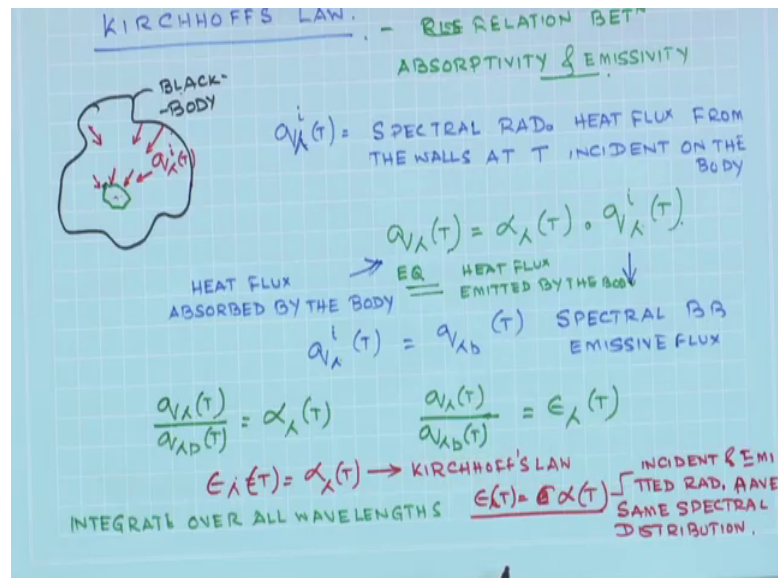 KIRCHHOFFS LAW. - RELATION BETN
ABSORPTIVITY & EMISSIVITY
BLACK-
-BODY
q_λ^i(T)
q_λ^i(T) = SPECTRAL RAD. HEAT FLUX FROM
THE WALLS AT T INCIDENT ON THE
BODY
q_λ(T) = α_λ(T) . q_λ^i(T).
HEAT FLUX
ABSORBED BY THE BODY
EQ
HEAT FLUX
EMITTED BY THE BOD
q_λ^i(T) = q_λb(T) SPECTRAL BB
EMISSIVE FLUX
q_λ(T)/q_λb(T) = α_λ(T) q_λ(T)/q_λb(T) = ε_λ(T)
ε_λ(T) = α_λ(T) → KIRCHHOFF'S LAW
INTEGRATE OVER ALL WAVELENGTHS ε(T) = α(T)
INCIDENT & EMI
TTED RAD. HAVE
SAME SPECTRAL
DISTRIBUTION.